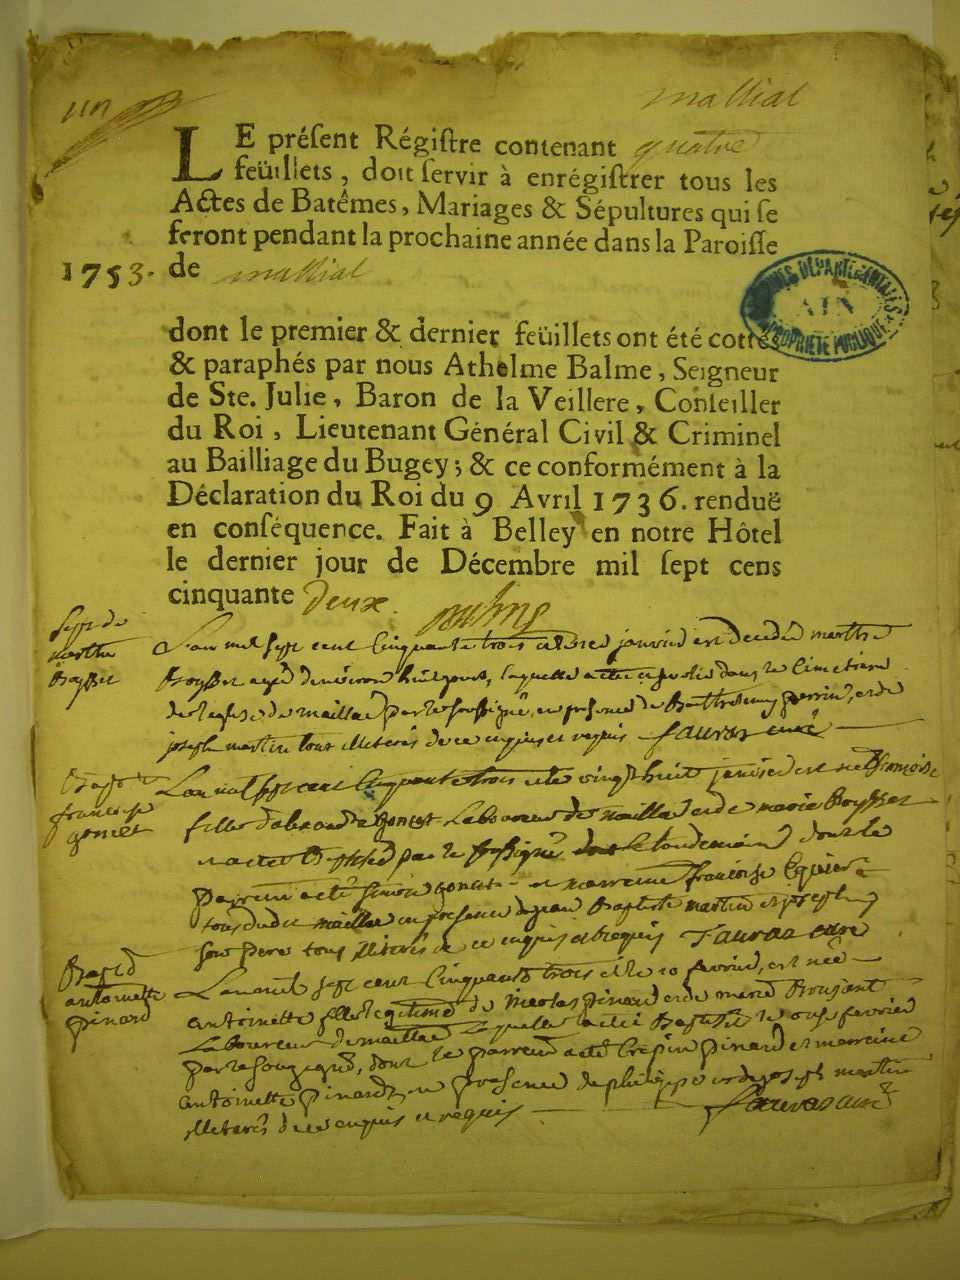 un
malliat
LE préſent Régiſtre contenant quatre
feüillets, doit ſervir à enrégiſtrer tous les
Actes de Batêmes, Mariages & Sépultures qui ſe
feront pendant la prochaine année dans la Paroiſſe
1753. de malliat
ARCHIVES DÉPARTEMENTALES
AIN
PROPRIÉTÉ PUBLIQUE
dont le premier & dernier feüillets ont été cottés
& paraphés par nous Athelme Balme, Seigneur
de Ste. Julie, Baron de la Veillere, Conſeiller
du Roi, Lieutenant Général Civil & Criminel
au Bailliage du Bugey; & ce conformément à la
Déclaration du Roi du 9 Avril 1736. renduë
en conſéquence. Fait à Belley en notre Hôtel
le dernier jour de Décembre mil ſept cens
cinquante deux.
Sept de
marthe
Boysset
L'an mil sept cent Cinquante trois et le janvier est decedée marthe
Boysset agée d'environ laquelle a été dans le Cimetiere
de l'eglise de maillac par le soussigné, en presence de Barthelemy perrin, et de
joseph martin tous illiterés de ce enquis et requis fauraz curé
Bapt
francoise
goncet
L'an mil sept cent Cinquante trois et le vingt huit janvier est née francoise
fille d'alexandre goncet Laboureur de maillac et de marie Boysset
et a été Baptisée par le soussigné le lendemain dont le
parrein a été simon goncet et marreine francoise
tous dudit maillac en presence de jean Baptiste martin et joseph
son pere tous illiterés de ce enquis et requis fauraz curé
Bapt
antoinette
pinard
L'an mil sept cent Cinquante trois et le 10 fevrier, est née
antoinette fille legitime de Nicolas pinard et de marie Boujant
Laboureur de maillac laquelle a été Baptisée le onse fevrier
par le sousigné, dont le parrein a été Crepin pinard et marreine
antoinette pinard en presence de philippe et de joseph martin
illiterés de ce enquis et requis fauraz curé